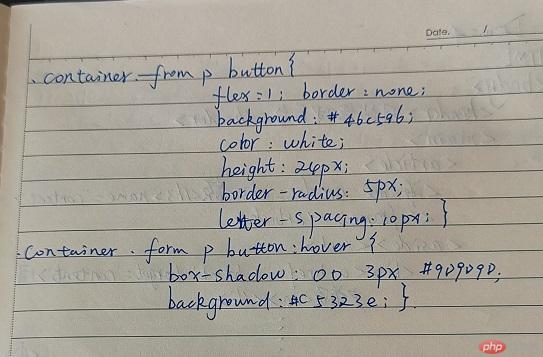 Date. /
.container.from p button{
flex=1; border:none;
background:#46c596;
color:white;
height:24px;
border-radius: 5px;
letter-spacing:10px;}
.container.form p button:hover {
box-shadow:00 3px #9D9D9D;
background:#C5323e;}
php